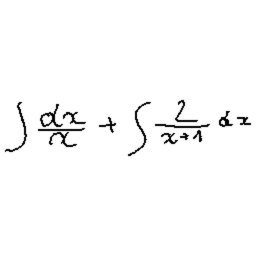 ∫ dx/x + ∫ 2/(x+1) dx